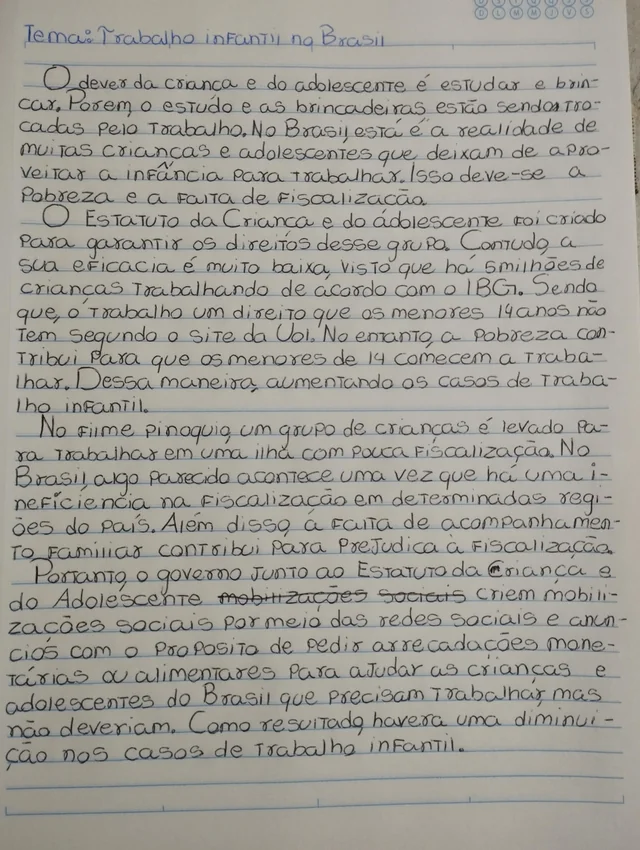 D L M M J V S
Tema: Trabalho infantil no Brasil
O dever da criança e do adolescente é estudar e brin-
car. Porem, o estudo e as brincadeiras estão sendos tro-
cadas pelo trabalho. No Brasil, está é a realidade de
muitas crianças e adolescentes que deixam de apro-
veitar a infância para trabalhar. Isso deve-se a
pobreza e a falta de fiscalização.
O Estatuto da Criança e do adolescente foi criado
para garantir os direitos desse grupo. Contudo, a
sua eficacia é muito baixa, visto que há 5 milhões de
crianças trabalhando de acordo com o IBG. Sendo
que, o trabalho um direito que os menores 14 anos não
tem segundo o site da Uol. No entanto, a pobreza con-
tribui para que os menores de 14 comecem a traba-
lhar. Dessa maneira, aumentando os casos de traba-
lho infantil.
No filme pinoquio, um grupo de crianças é levado pa-
ra trabalhar em uma ilha com pouca fiscalização. No
Brasil, algo parecido acontece uma vez que há uma i-
neficiencia na fiscalização em determinadas regi-
ões do país. Além disso, a falta de acompanhamen-
to familiar contribui para prejudica à fiscalização.
Portanto, o governo junto ao Estatuto da Criança e
do Adolescente mobilizações sociais criem mobili-
zações sociais por meio das redes sociais e anún-
cios com o proposito de pedir arrecadações mone-
tárias ou alimentares para ajudar as crianças e
adolescentes do Brasil que precisam trabalhar, mas
não deveriam. Como resultado, havera uma diminui-
ção nos casos de trabalho infantil.